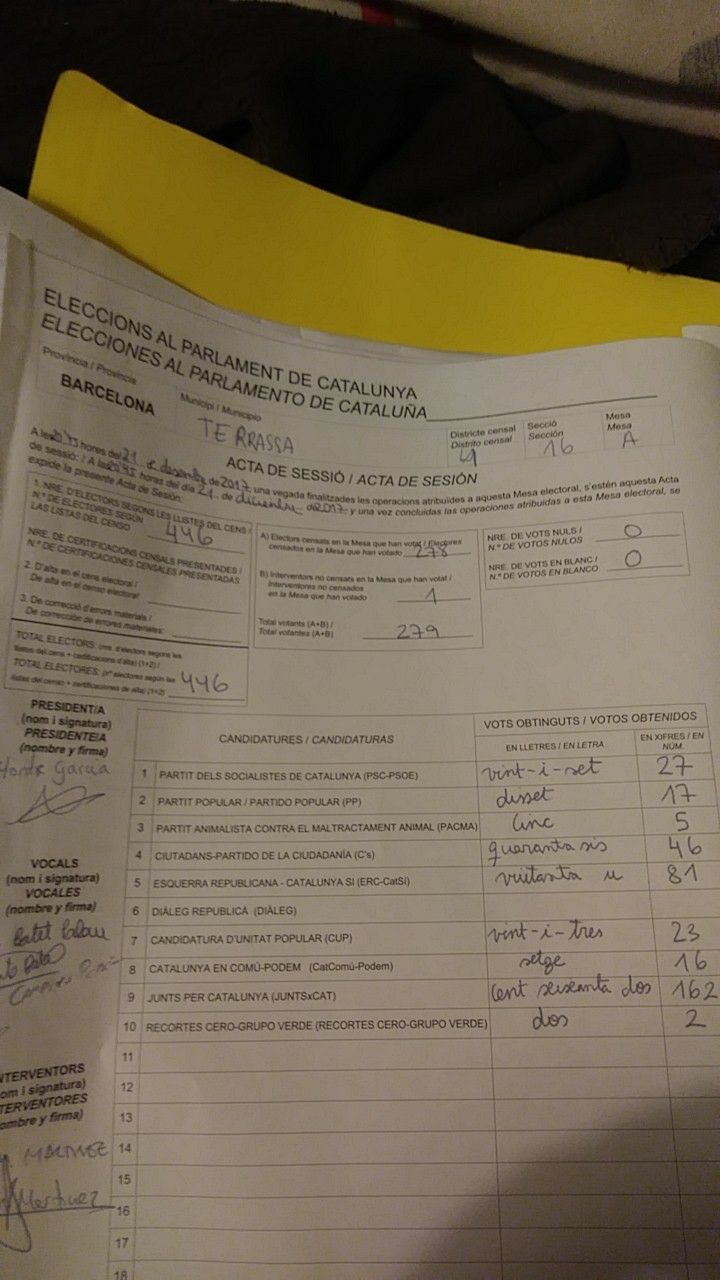 ELECCIONS AL PARLAMENT DE CATALUNYA
ELECCIONES AL PARLAMENTO DE CATALUÑA
Província / Provincia
BARCELONA
Municipi / Municipio
TERRASSA
Districte censal
Distrito censal
4
Secció
Sección
16
Mesa
Mesa
A
ACTA DE SESSIÓ / ACTA DE SESIÓN
A les 20'45 hores del 21 de desembre de 2017, una vegada finalitzades les operacions atribuïdes a aquesta Mesa electoral, s'estén aquesta Acta
de sessió: / A las 20'45 horas del día 21 de diciembre de 2017 y una vez concluidas las operaciones atribuidas a esta Mesa electoral, se
expide la presente Acta de Sesión.
1. NRE. D'ELECTORS SEGONS LES LLISTES DEL CENS /
N.º DE ELECTORES SEGÚN
LAS LISTAS DEL CENSO 446
NRE. DE CERTIFICACIONS CENSALS PRESENTADES /
N.º DE CERTIFICACIONES CENSALES PRESENTADAS
2. D'alta en el cens electoral /
De alta en el censo electoral:
3. De correcció d'errors materials /
De corrección de errores materiales:
TOTAL ELECTORS: (nre. d'electors segons les
llistes del cens + certificacions d'alta) (1+2) /
TOTAL ELECTORES: (nº electores según las
listas del censo + certificaciones de alta) (1+2) 446
A) Electors censats en la Mesa que han votat / Electores
censados en la Mesa que han votado 278
B) Interventors no censats en la Mesa que han votat /
Interventores no censados
en la Mesa que han votado 1
Total votants (A+B) /
Total votantes (A+B) 279
NRE. DE VOTS NULS /
N.º DE VOTOS NULOS 0
NRE. DE VOTS EN BLANC /
N.º DE VOTOS EN BLANCO 0
PRESIDENT/A
(nom i signatura)
PRESIDENTE/A
(nombre y firma)
Garcia
VOCALS
(nom i signatura)
VOCALES
(nombre y firma)
Batet
INTERVENTORS
(nom i signatura)
INTERVENTORES
(nombre y firma)
MARTINEZ
Martinez
CANDIDATURES / CANDIDATURAS
VOTS OBTINGUTS / VOTOS OBTENIDOS
EN LLETRES / EN LETRA
EN XIFRES / EN NÚM.
1 PARTIT DELS SOCIALISTES DE CATALUNYA (PSC-PSOE) vint-i-set 27
2 PARTIT POPULAR / PARTIDO POPULAR (PP) disset 17
3 PARTIT ANIMALISTA CONTRA EL MALTRACTAMENT ANIMAL (PACMA) cinc 5
4 CIUTADANS-PARTIDO DE LA CIUDADANÍA (C's) quaranta sis 46
5 ESQUERRA REPUBLICANA - CATALUNYA SI (ERC-CatSí) vuitanta u 81
6 DIÀLEG REPUBLICÀ (DIÀLEG)
7 CANDIDATURA D'UNITAT POPULAR (CUP) vint-i-tres 23
8 CATALUNYA EN COMÚ-PODEM (CatComú-Podem) setge 16
9 JUNTS PER CATALUNYA (JUNTSxCAT) cent seixanta dos 162
10 RECORTES CERO-GRUPO VERDE (RECORTES CERO-GRUPO VERDE) dos 2
11
12
13
14
15
16
17
18